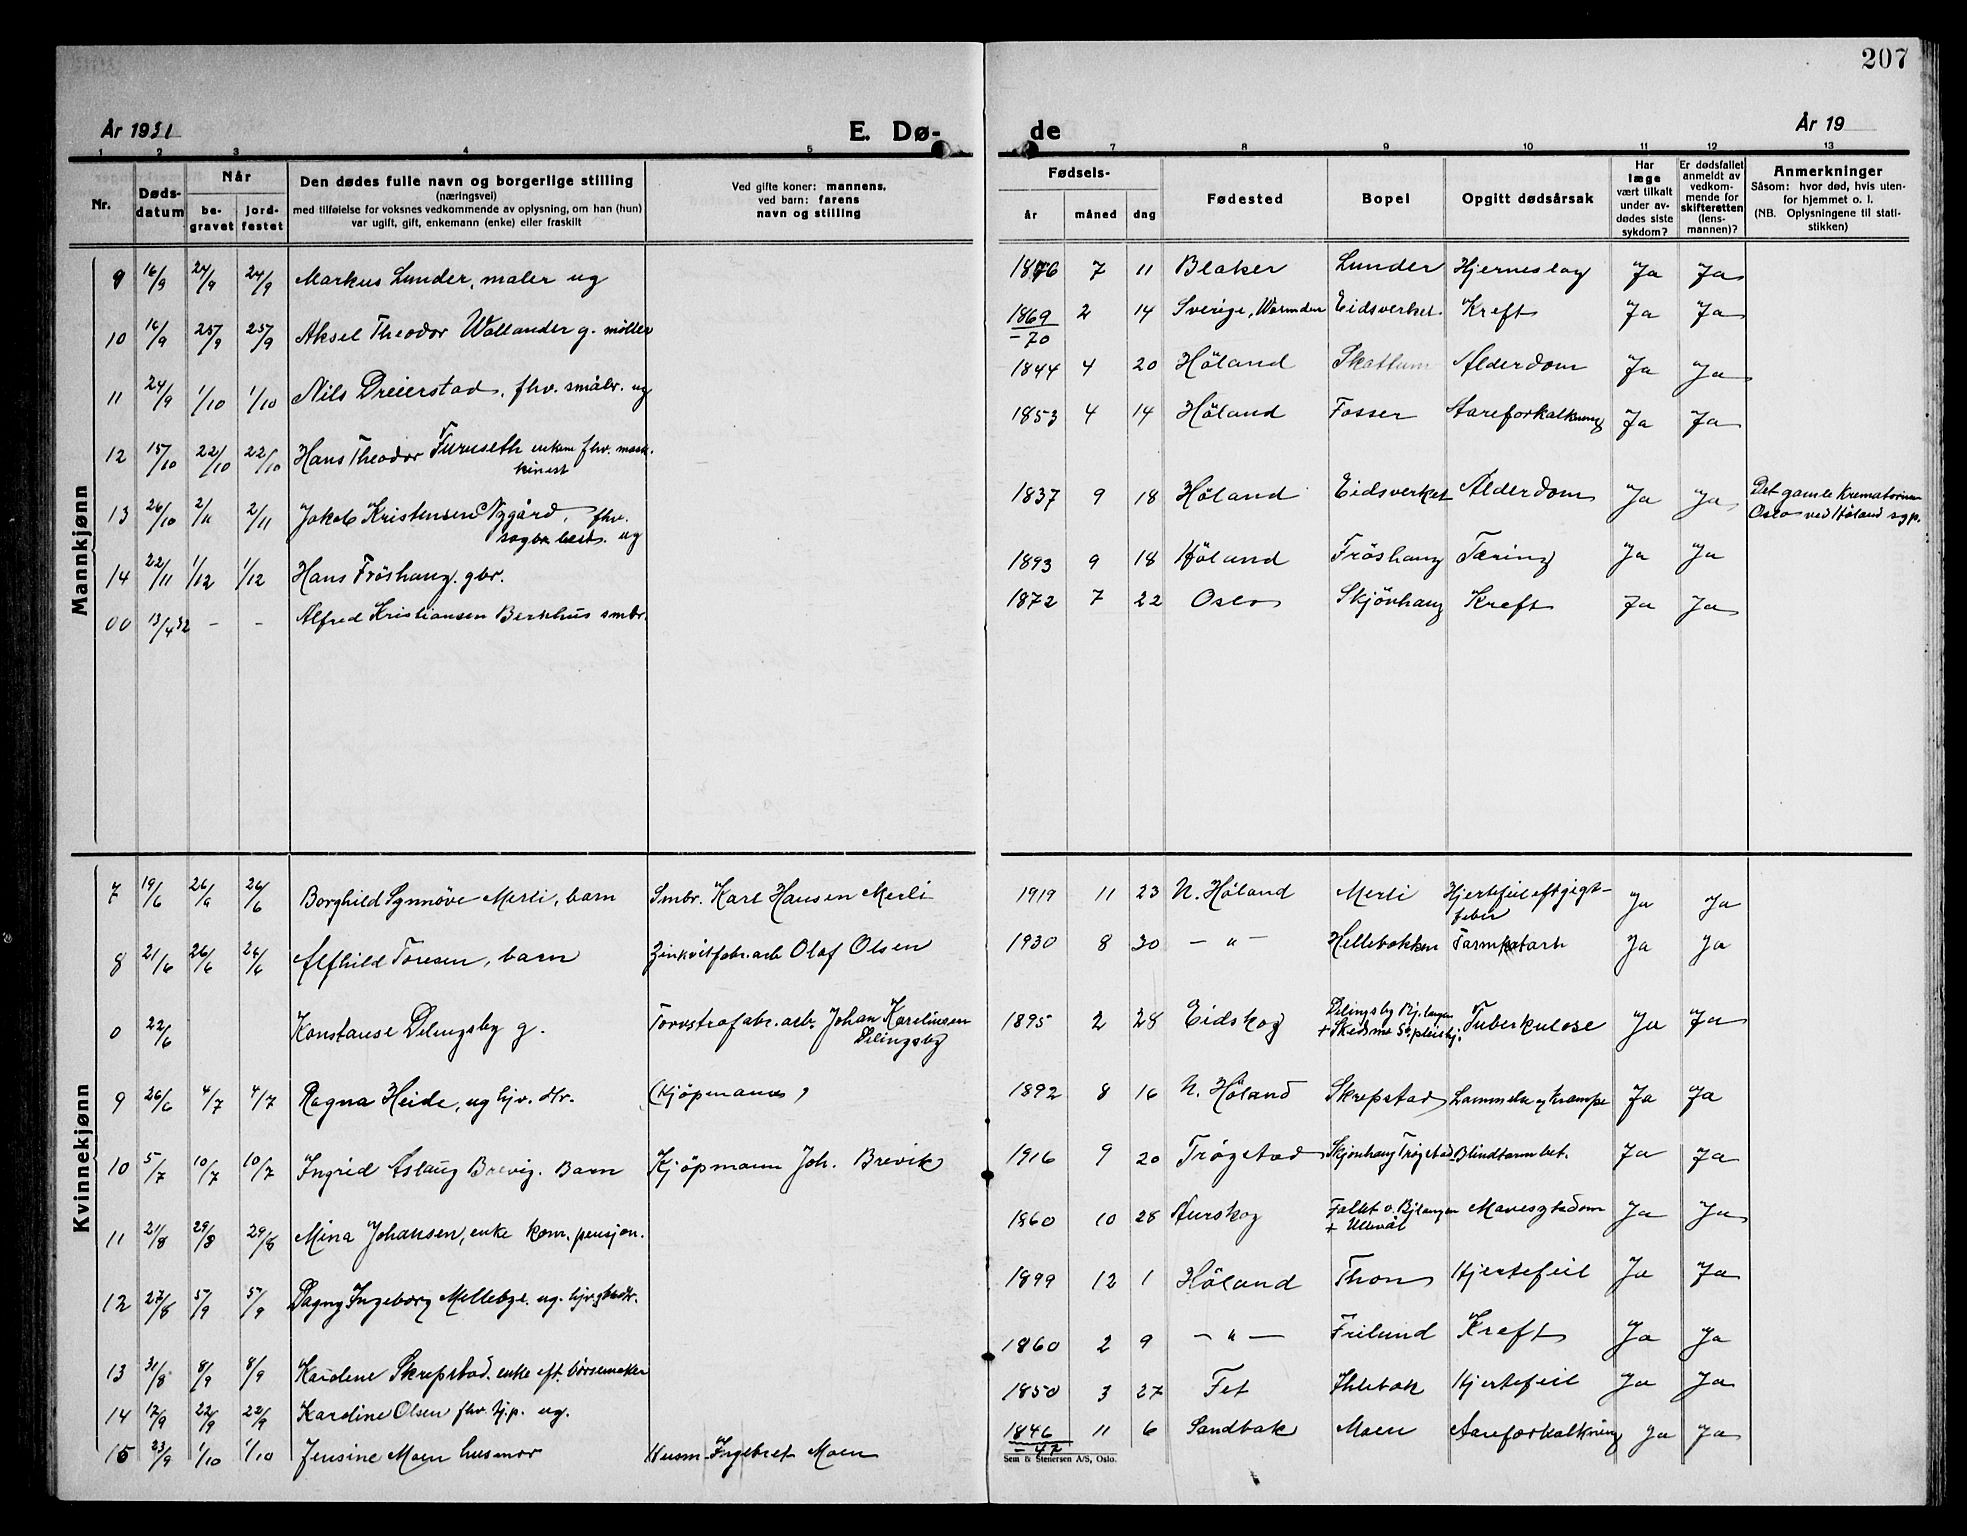 207
År 1931
E. Dø-
de
År 19
1 2 3 4 5 7 8 9 10 11 12 13
Nr.
Døds-
datum
Når
be-
gravet
jord-
festet
Den dødes fulle navn og borgerlige stilling
(næringsvei)
med tilføielse for voksnes vedkommende av oplysning, om han (hun)
var ugift, gift, enkemann (enke) eller fraskilt
Ved gifte koner: mannens,
ved barn: farens
navn og stilling
Fødsels-
år måned dag
Fødested
Bopel
Opgitt dødsårsak
Har
læge
vært tilkalt
under av-
dødes siste
sykdom?
Er dødsfallet
anmeldt av
vedkom-
mende for
skifteretten
(lens-
mannen)?
Anmerkninger
Såsom: hvor død, hvis uten-
for hjemmet o. l.
(NB. Oplysningene til stati-
stikken)
Mannkjønn
9 16/9 24/9 24/9 Markus Lunder, maler ug 1876 7 11 Blaker Lunder Hjerneslag Ja Ja
10 16/9 25/9 25/9 Aksel Theodor Wallander g. møller 1869 2 14 Sverige, Eidsverket Kreft Ja Ja
-70
11 24/9 1/10 1/10 Nils Dreierstad, fhv. småbr. ug 1844 4 20 Höland Skattum Alderdom Ja Ja
12 15/10 22/10 22/10 Hans Theodor Furuseth enkem fhv. mask-
kinist 1853 4 14 Höland Fosser Aareforkalkning Ja Ja
13 26/10 2/11 2/11 Jakob Kristensen Nygård, fhv.
sagbr. best. ug 1837 9 18 Höland Eidsverket Alderdom Ja Ja Det gamle Krematorium
Oslo ved Höland sgp.
14 22/11 1/12 1/12 Hans Fröshaug. gbr. 1893 9 18 Höland Fröshaug Tæring Ja Ja
00 13/4 32 - - Alfred Kristiansen Berkhus smbr. 1872 7 22 Oslo Skjönhaug Kreft Ja Ja
Kvinnekjønn
7 19/6 26/6 26/6 Borghild Synnöve Merli, barn Smbr. Karl Hansen Merli 1919 11 23 N. Höland Merli Hjertefeil eft gigt-
feber Ja Ja
8 21/6 26/6 26/6 Alfhild Toresen, barn Zinkvitfabr.arb Olaf Olsen 1930 8 30 - " - Hellebakken Tarmkatarh Ja Ja
0 22/6 Konstanse Delingsby g. Torvstrøfabr. arb. Johan Karelinsen
Delingsby 1895 2 28 Eidskog Delingsby Bj.langen
+ Skedsmo Tuberkulose Ja Ja
9 26/6 4/7 4/7 Ragna Heide, ug hjv. dtr. (Kjöpmann) 1892 8 16 N. Höland Skrepstad Lammelse og Krampe Ja Ja
10 5/7 10/7 10/7 Ingrid Aslaug Brevig. Barn Kjöpmann Joh. Brevik 1916 9 20 Trøgstad Skjönhaug Trøgstad Blindtarmbet. Ja Ja
11 21/8 29/8 29/8 Mina Johansen, enke kom. pensjon. 1860 10 28 Aurskog Fallet v. Bjlangen
+ Ullevål Mavesygdom Ja Ja
12 27/8 5/9 5/9 Dagny Ingeborg Mellebye. ug. hjv. gbrdtr. 1899 12 1 Höland Thon Hjertefeil Ja Ja
13 31/8 8/9 8/9 Karolene Skrepstad. enke eft. börsemaker 1860 2 9 - " - Frilund Kreft Ja Ja
14 17/9 22/9 22/9 Kardine Olsen fhv. tj.p. ug. 1850 3 27 Fet Ihlebak Hjertefeil Ja Ja
15 23/9 1/10 1/10 Jensine Moen husmor Husm. Ingebret Moen 1846 11 6 Sandbak Moen Aareforkalkning Ja Ja
- 47
Sem & Stenersen A/S, Oslo.